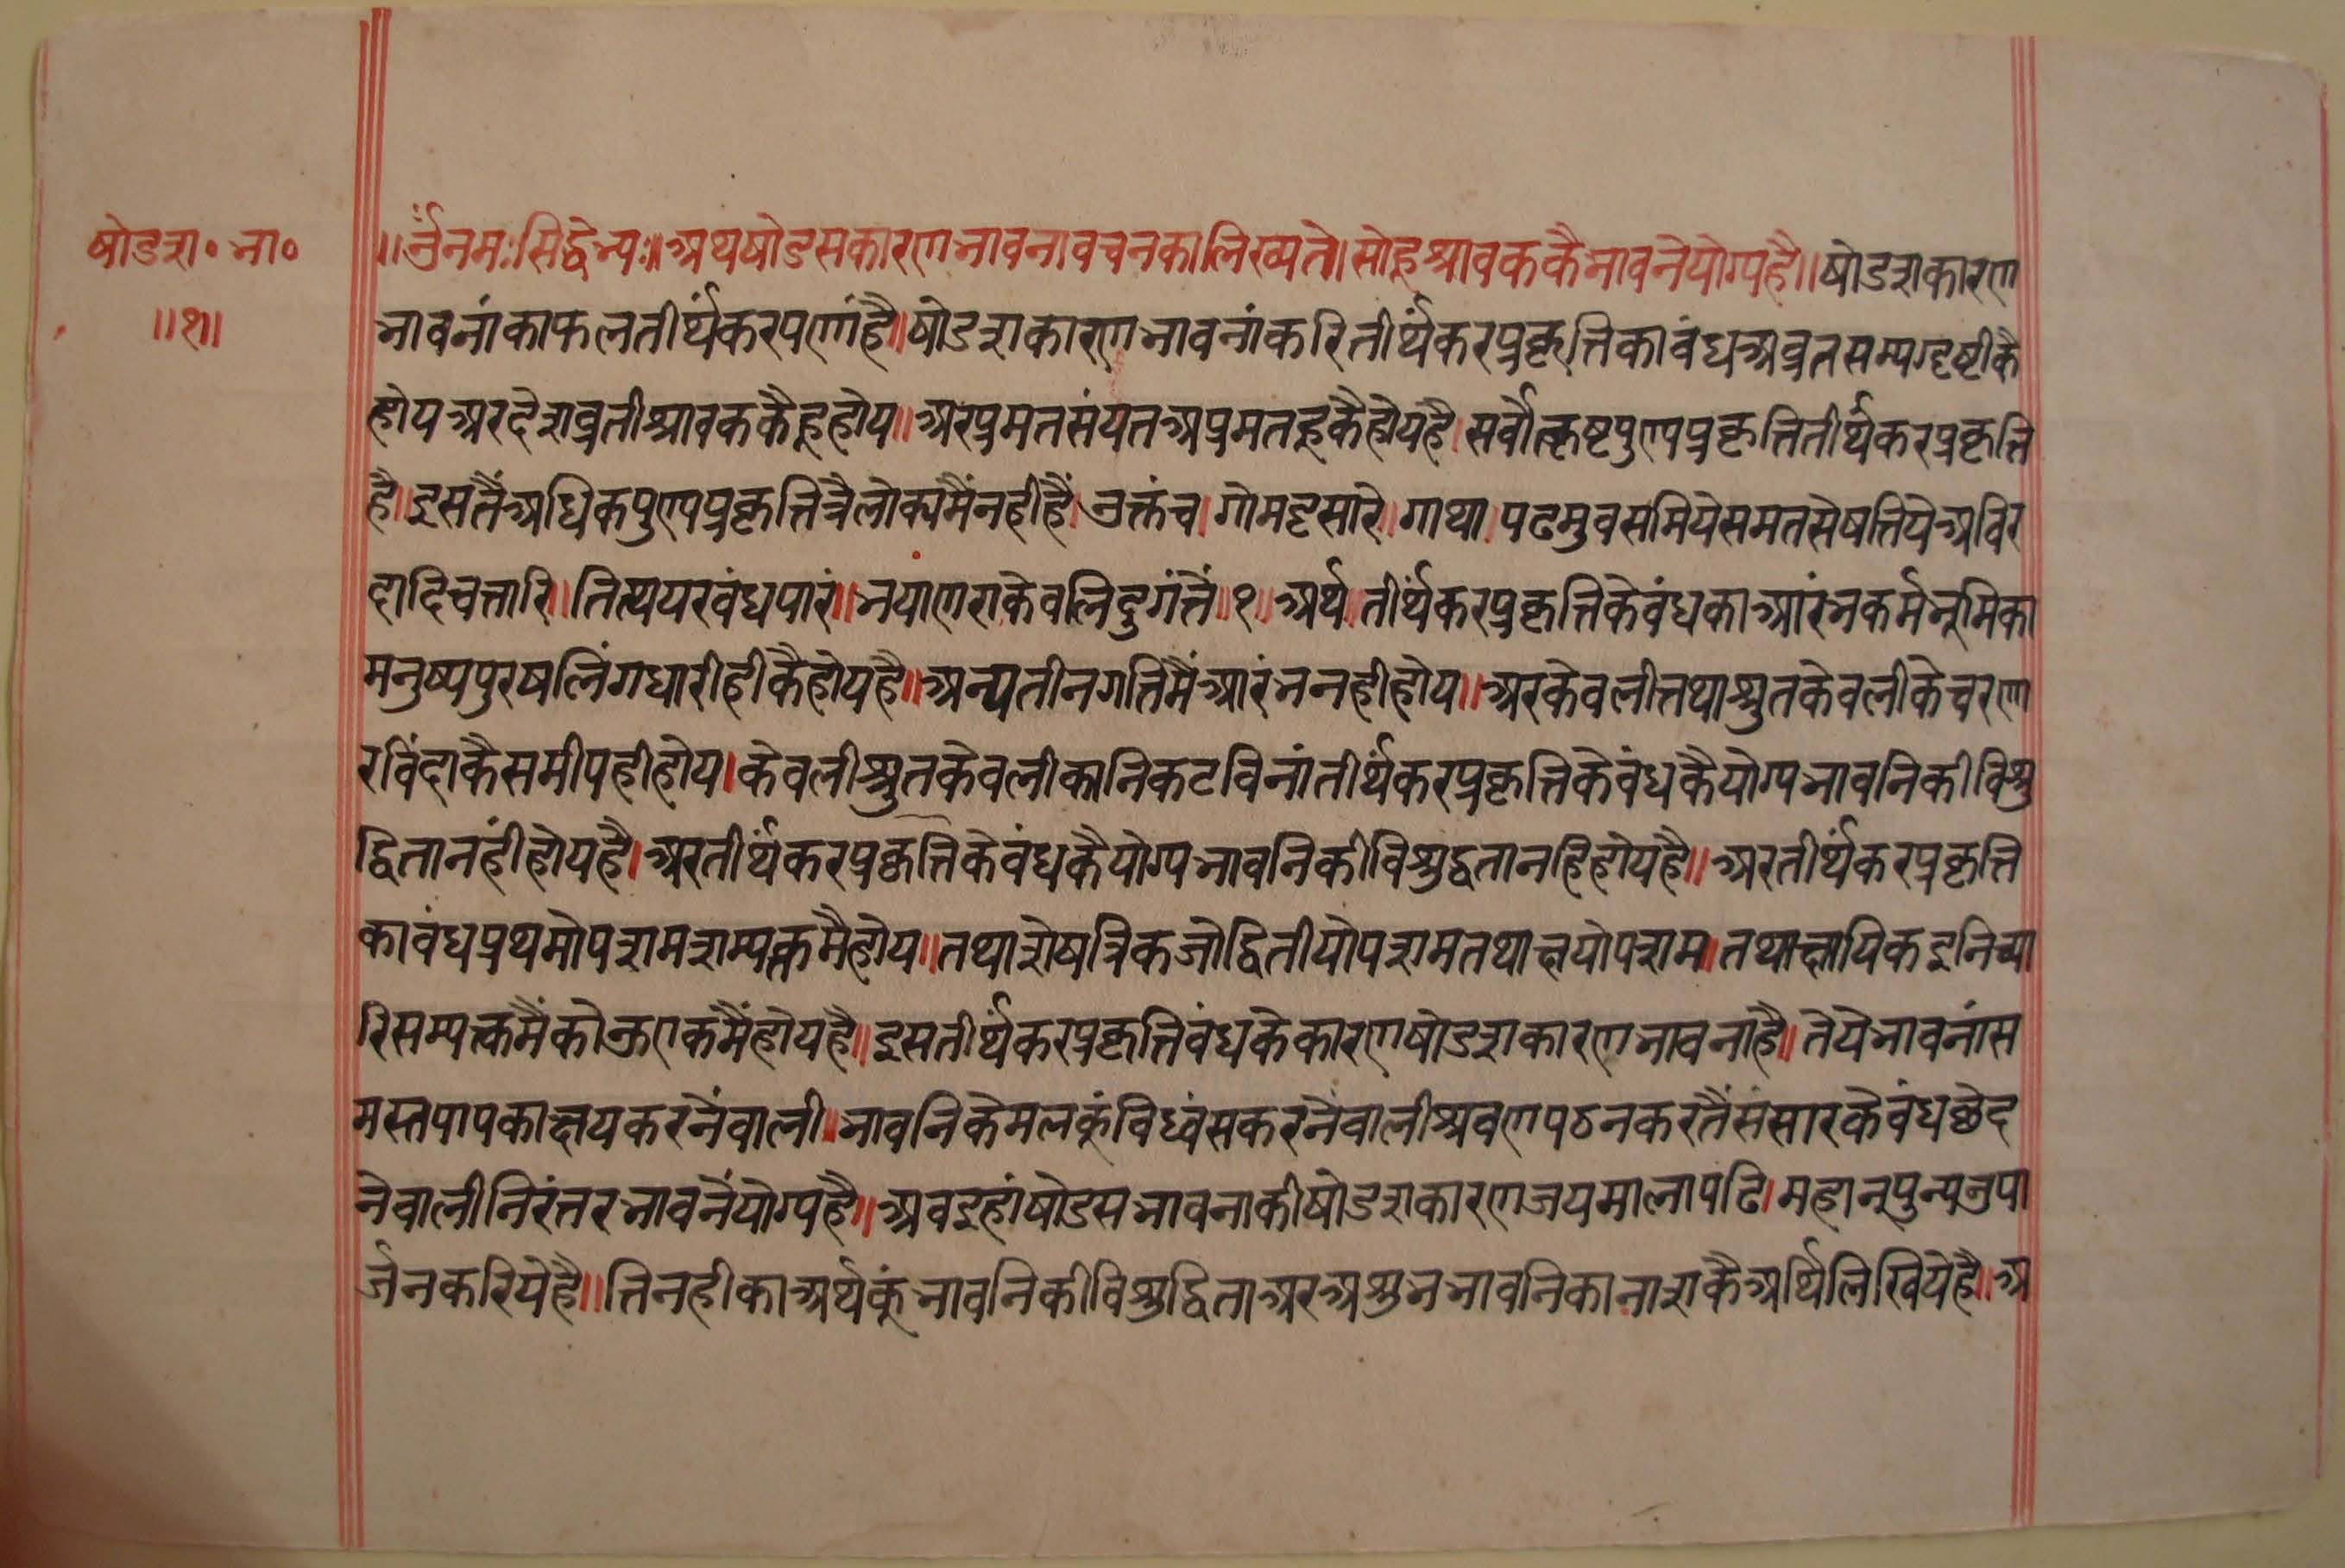 षोडश॰ भा॰
॥१॥
॥ॐनमःसिद्धेभ्यः॥अथषोडसकारणभावनावचनकालिख्यते।सोहूश्रावककैभावनेयोग्यहै॥षोडशकारण
भावनांकाफलतीर्थंकरपणांहै॥षोडशकारणभावनांकरितीर्थंकरप्रकृत्तिकाबंधअव्रतसम्यग्दृष्टीकै
होयअरदेशव्रतीश्रावककैहूहोय॥अरप्रमतसंयतअप्रमतहूकैहोयहै।सर्वोत्कृष्टपुण्यप्रकृत्तितीर्थंकरप्रकृत्ति
है॥इसतैंअधिकपुण्यप्रकृत्तित्रैलोक्यमैंनहीहैं।उक्तंच।गोमट्टसारे॥गाथा॥पढमुवसमियेसमतसेषत्तियेअविर
दादिचत्तारि॥तित्थयरबंधपारं॥भयाणराकेवलिदुगंत्तें॥१॥अर्थ॥तीर्थंकरप्रकृत्तिकेबंधकाआरंभकर्मभूमिका
मनुष्यपुरषलिंगधारीहीकैहोयहै॥अन्यतीनगत्तिमैंआरंभनहीहोय॥अरकेवलीत्तथाश्रुतकेवलीकेचरण
रविंदाकैसमीपहीहोय।केवलीश्रुतकेवलीकानिकटविनांतीर्थंकरप्रकृत्तिकेबंधकैयोग्यभावनिकीविश्रु
द्धितानहींहोयहै।अरतीर्थंकरप्रकृत्तिकेबंधकैयोग्यभावनिकीविश्रुद्धतानहिहोयहै॥अरतीर्थंकरप्रकृत्ति
काबंधप्रथमोपशमशम्यक्तमैहोय॥तथाशेषत्रिकजोद्वितीयोपशमतथाक्षयोपशम॥तथाक्षायिकइनिच्या
रिसम्यक्तमैंकोऊएकमैंहोयहै॥इसतीर्थंकरप्रकृत्तिबंधकेकारणषोडशकारणभावनाहै॥तेयेभावनांस
मस्तपापकाक्षयकरनेंवाली॥भावनिकेमलकूंविध्वंसकरनेंवालीश्रवणपठनकरतैंसंसारकेबंधछेद
नेवालीनिरंत्तरभावनेंयोग्यहै॥अवइहांषोडसभावनाकीषोडशकारणजयमालापढि।महानपुन्यउपा
र्जनकरियेहै॥त्तिनहीकाअर्थकूंभावनिकीविश्रुद्धिताअरअश्रुभभावनिकानाशकैअर्थिलिखियेहै॥अ